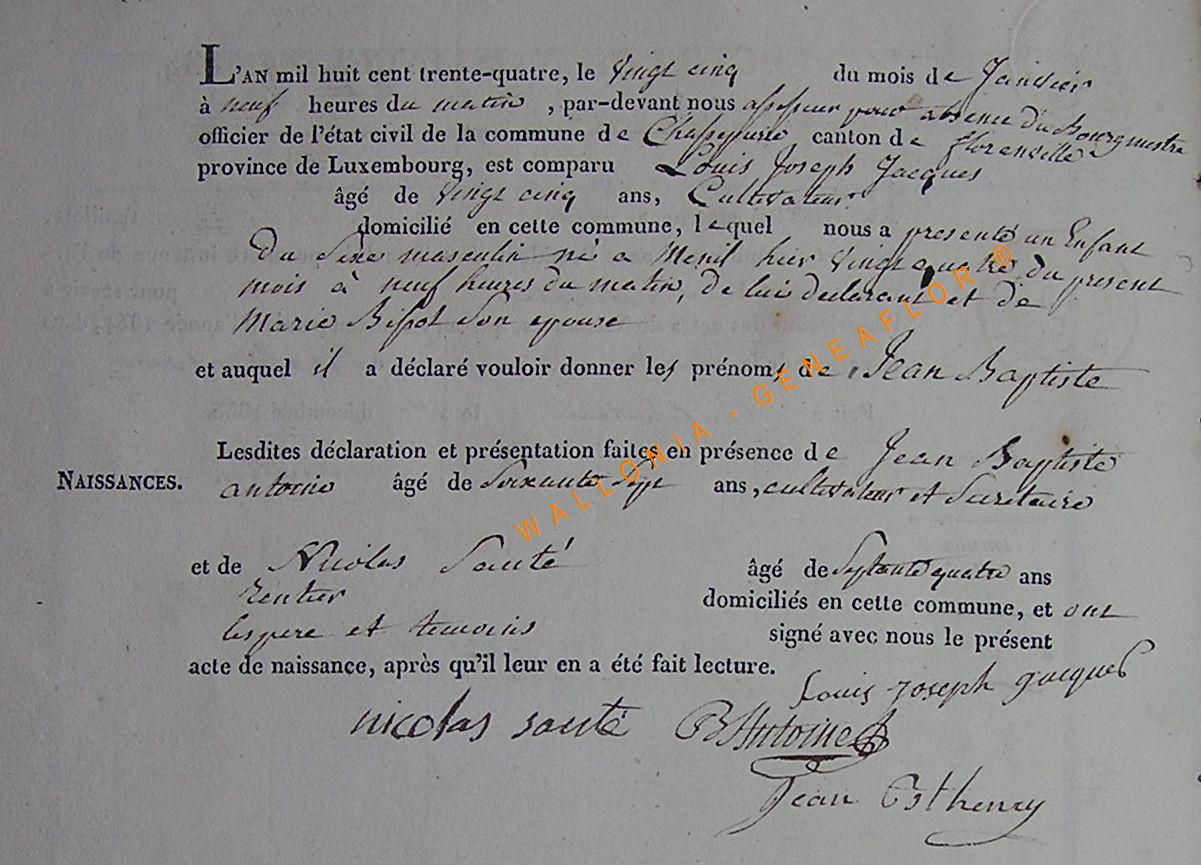 L'AN mil huit cent trente-quatre, le Vingt cinq du mois de Janvier
à neuf heures du matin, par-devant nous assesseur pour absence du Bourgmestre
officier de l'état civil de la commune de Chassepierre canton de florenville
province de Luxembourg, est comparu Louis Joseph Jacques
âgé de Vingt cinq ans, Cultivateur
domicilié en cette commune, lequel nous a presenté un Enfant
Du Sexe masculin né a Menil hier Vingt quatre du present
mois à neuf heures du matin, de lui declarant et de
Marie Son epouse
et auquel il a déclaré vouloir donner les prénoms de Jean Baptiste
Lesdites déclaration et présentation faites en présence de Jean Baptiste
NAISSANCES.
antoine âgé de Soixante Sept ans, cultivateur et Secretaire
et de Nicolas Santé âgé de Septante quatre ans
Rentier domiciliés en cette commune, et ont
les pere et temoins signé avec nous le présent
acte de naissance, après qu'il leur en a été fait lecture.
Louis joseph jacques
nicolas santé B Antoine
Jean Bt henry
WALLONIA - GENEAFLOR ®